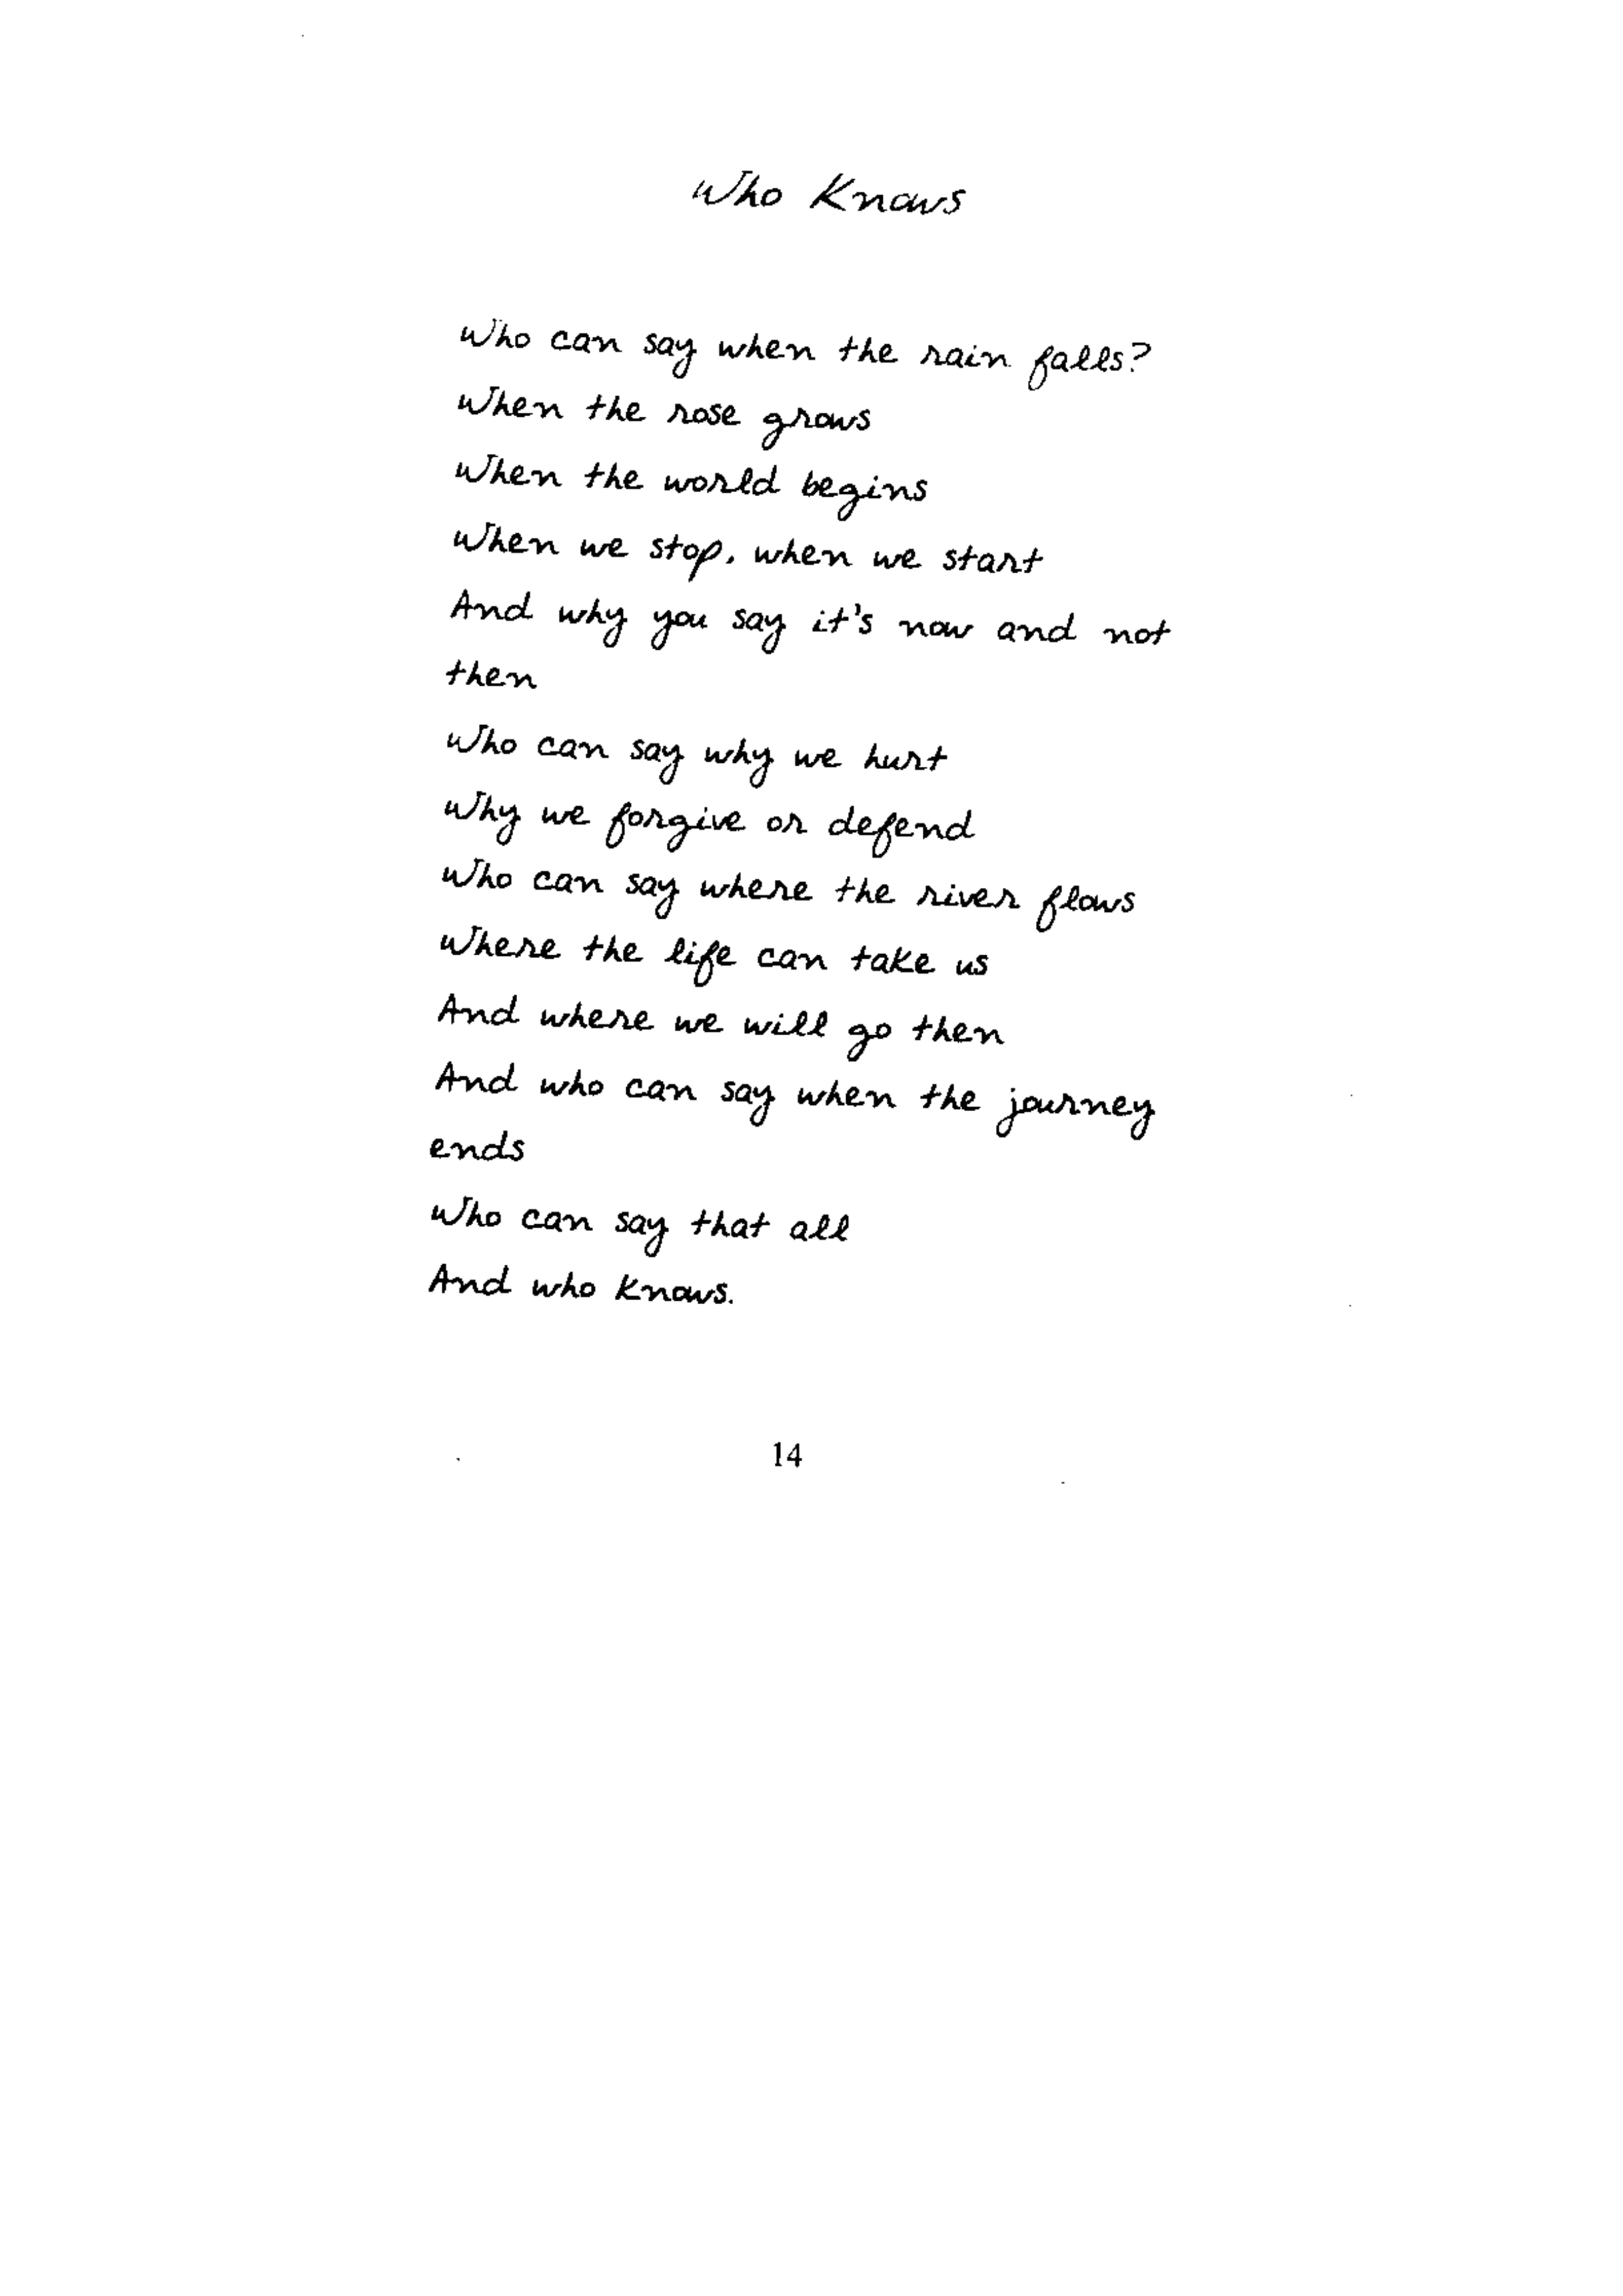 Who Knows
Who can say when the rain falls?
When the rose grows
When the world begins
When we stop, when we start
And why you say it's now and not
then
Who can say why we hurt
Why we forgive or defend
Who can say where the river flows
Where the life can take us
And where we will go then
And who can say when the journey
ends
Who can say that all
And who knows.
14